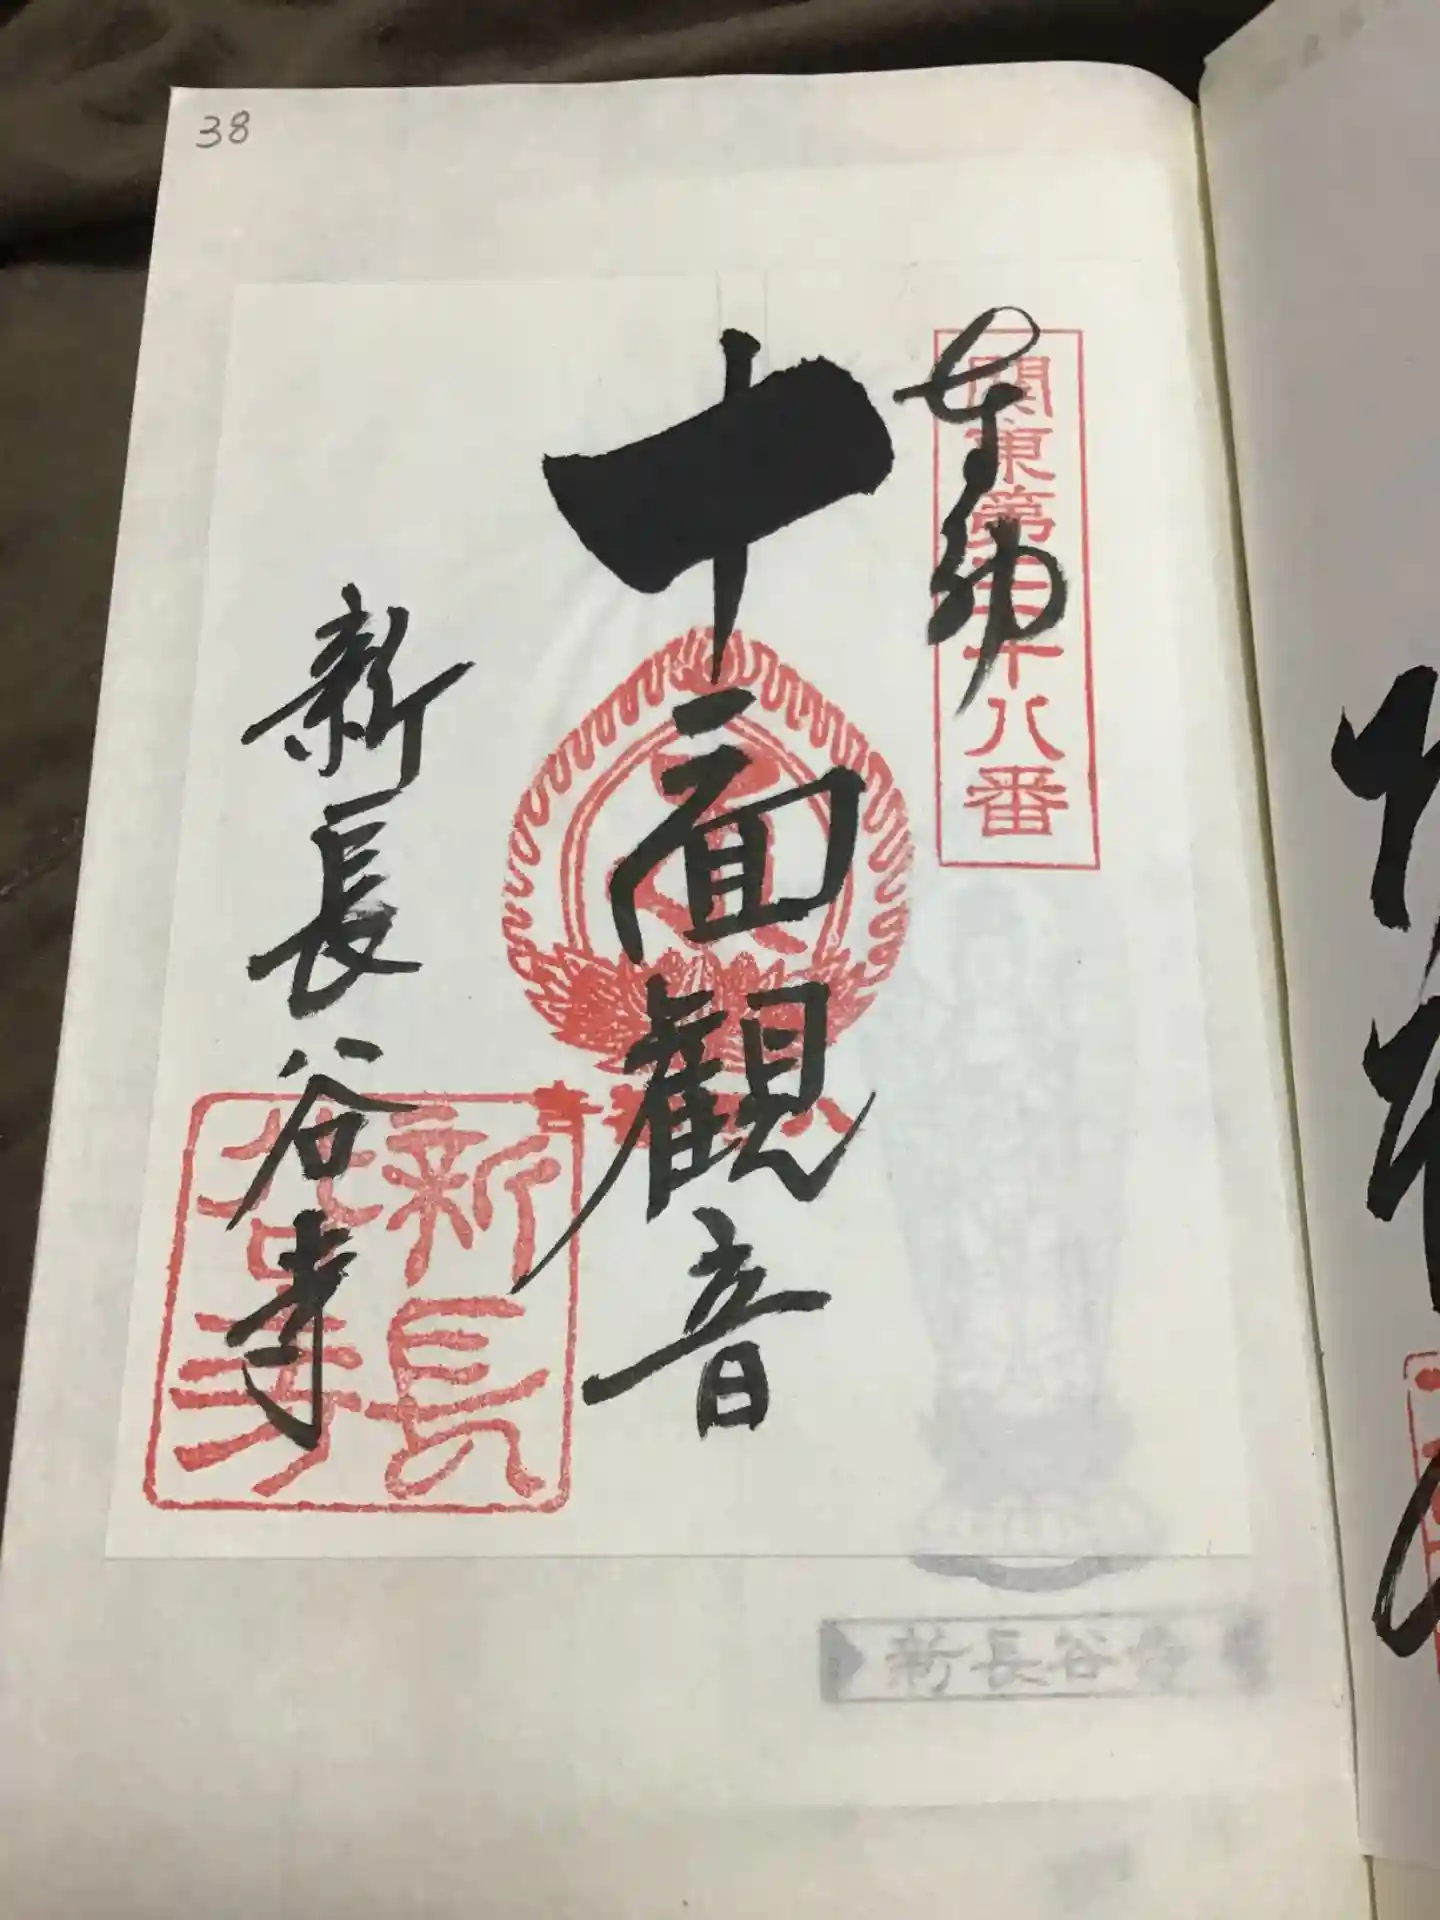 38
関東第三十八番
奉納
十一面観音
新長谷寺
新長谷寺
新長谷寺